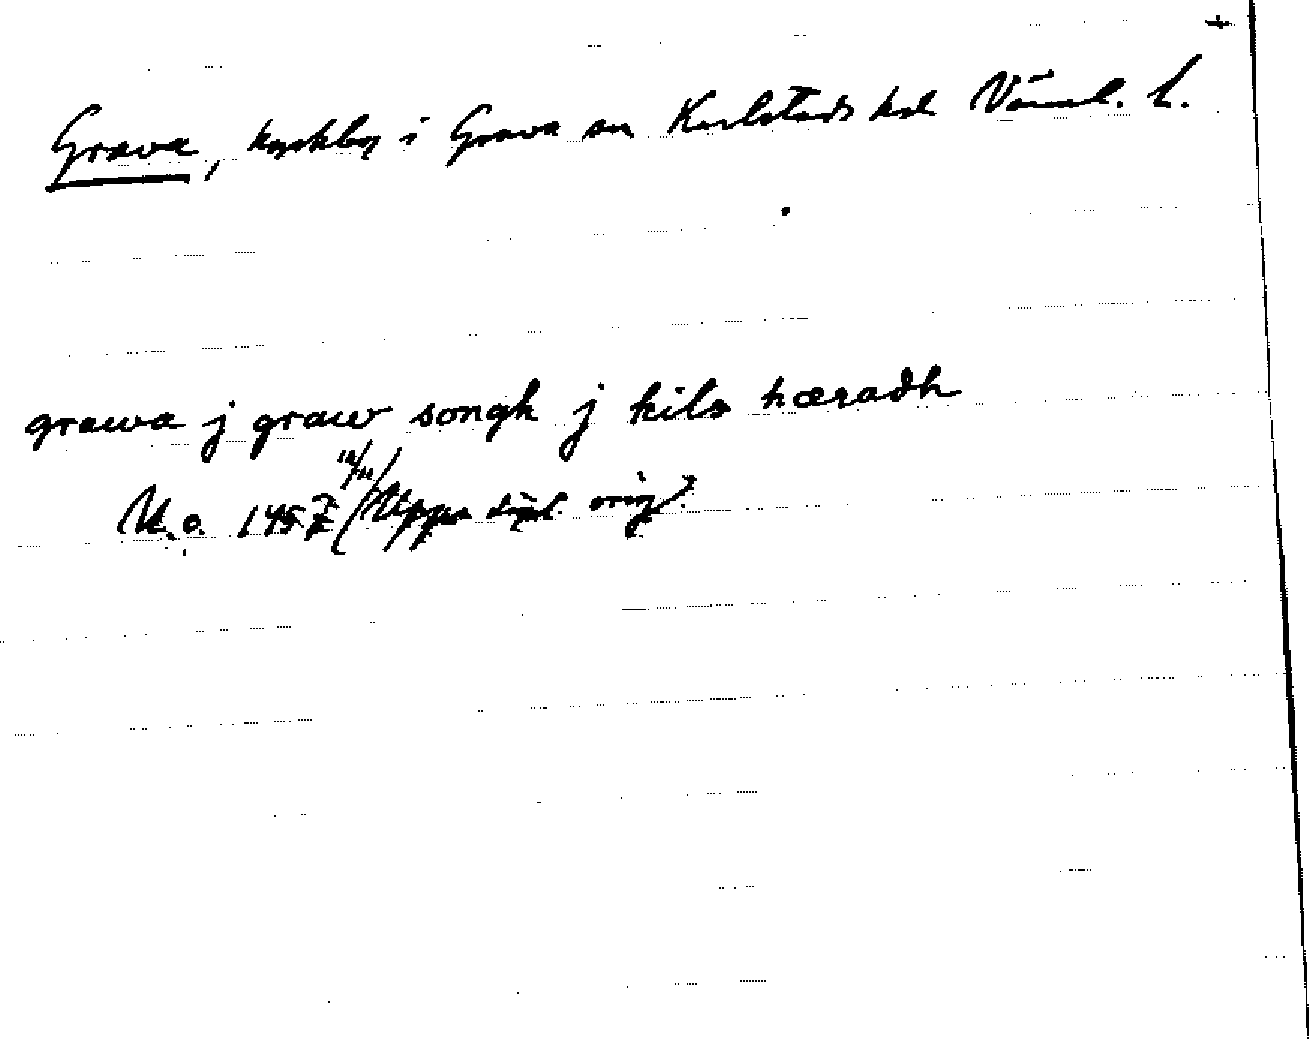 +
Grava, kyrkby i Grava sn Karlstads hd Värml. L.
grawa j graw songh j kils hæradh
U. o. 1457 Uppsa dipl. orig.